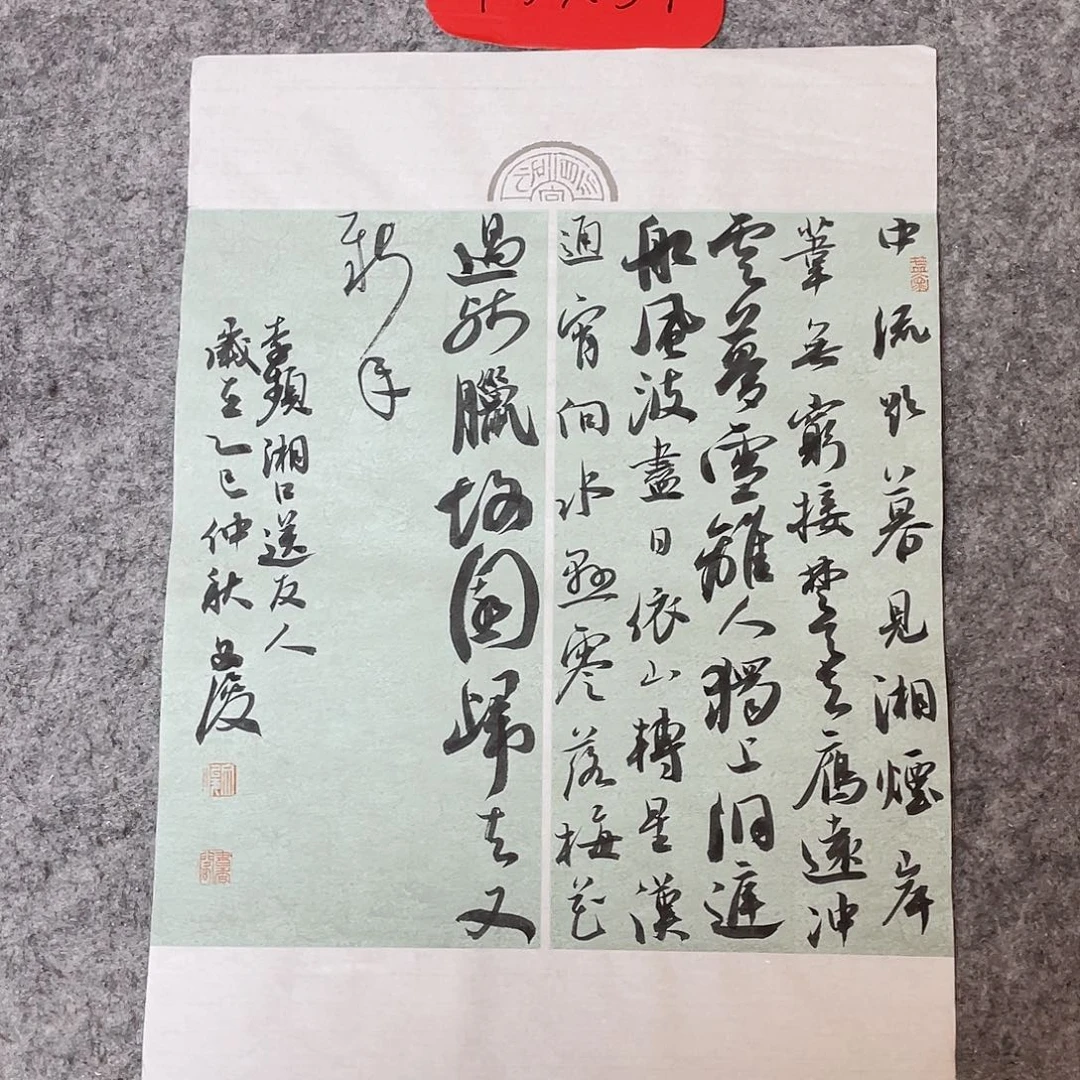 中流欲暮見湘煙岸
葦無窮接楚田去雁遠冲
雲夢雪離人獨上洞庭
船風波盡日依山轉星漢
通宵向水懸零落梅花
過殘臘故園歸去又
新年
李頻湘口送友人
歲在乙巳仲秋